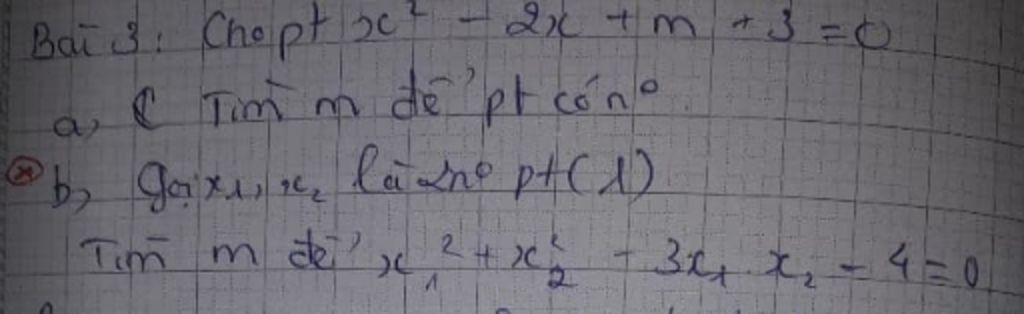 Bài 3: Cho pt x² - 2x + m + 3 = 0
a, Tìm m để pt có n°
b, gọi x₁, x₂ là 2n° pt (1)
Tìm m để x₁² + x₂² - 3x₁ x₂ - 4 = 0